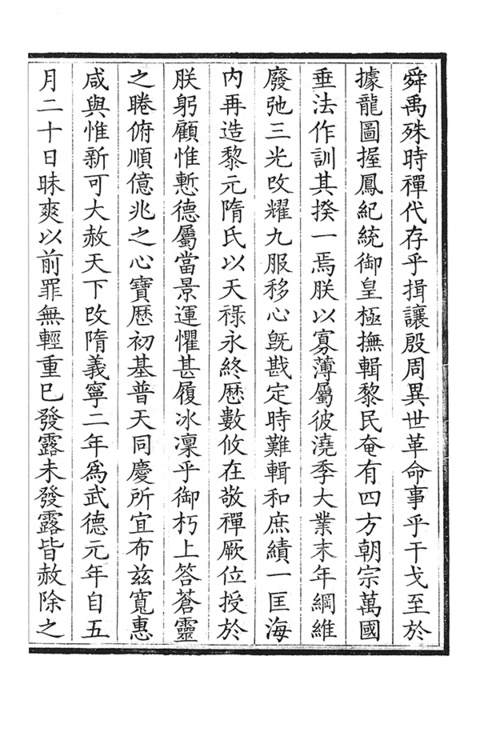 舜禹殊時禪代存乎揖讓殷周異世革命事乎干戈至於
據龍圖握鳳紀統御皇極撫輯黎民奄有四方朝宗萬國
垂法作訓其揆一焉朕以寡薄屬彼澆季大業末年綱維
廢弛三光改耀九服移心旣戡定時難輯和庶績一匡海
內再造黎元隋氏以天祿永終歴數攸在敬禪厥位授於
朕躬顧惟慙德屬當景運懼甚履冰凜乎御朽上答蒼靈
之睠俯順億兆之心寶歴初基普天同慶所宜布兹寬惠
咸與惟新可大赦天下改隋義寧二年爲武德元年自五
月二十日昧爽以前罪無輕重已發露未發露皆赦除之